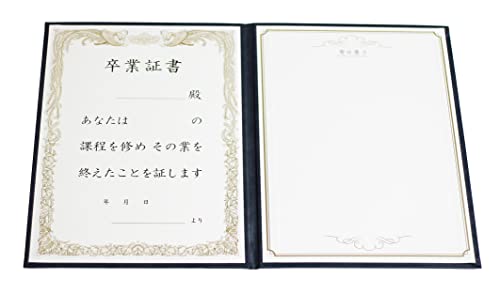 卒業証書
殿
あなたは の
課程を修め その業を
終えたことを証します
年 月 日
より